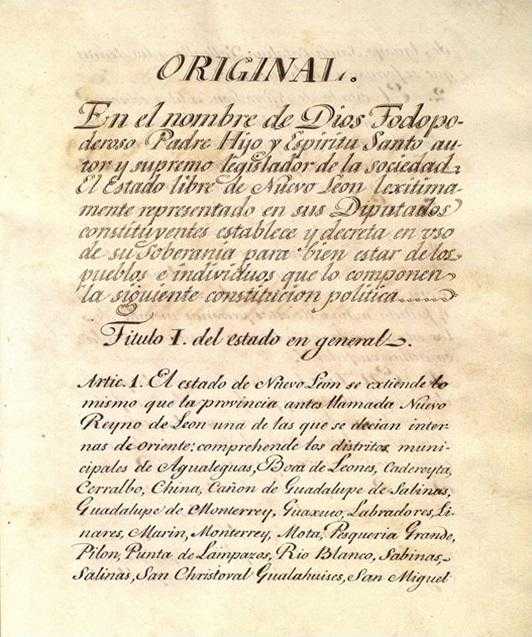 ORIGINAL.
En el nombre de Dios Todopo-
deroso Padre Hijo y Espiritu Santo au-
tor y supremo legislador de la sociedad.
El Estado libre de Nuevo Leon lexitima-
mente representado en sus Diputados
constituyentes establece y decreta en vso
de su Soberania para bien estar de los
pueblos e individuos que lo componen
la siguiente constitucion politica
Titulo I. del estado en general.
Artic. 1. El estado de Nuevo Leon se extiende lo
mismo que la provincia antes llamada Nuevo
Reyno de Leon una de las que se decian inter
nas de oriente: comprehende los distritos muni-
cipales de Agualeguas, Boca de Leones, Cadereyta,
Cerralbo, China, Cañon de Guadalupe de Salinas,
Guadalupe de Monterrey, Guaxuco, Labradores, Li-
nares, Marin, Monterrey, Mota, Pesqueria Grande,
Pilon, Punta de Lampazos, Rio Blanco, Sabinas,
Salinas, San Christoval Gualahuises, San Miguel